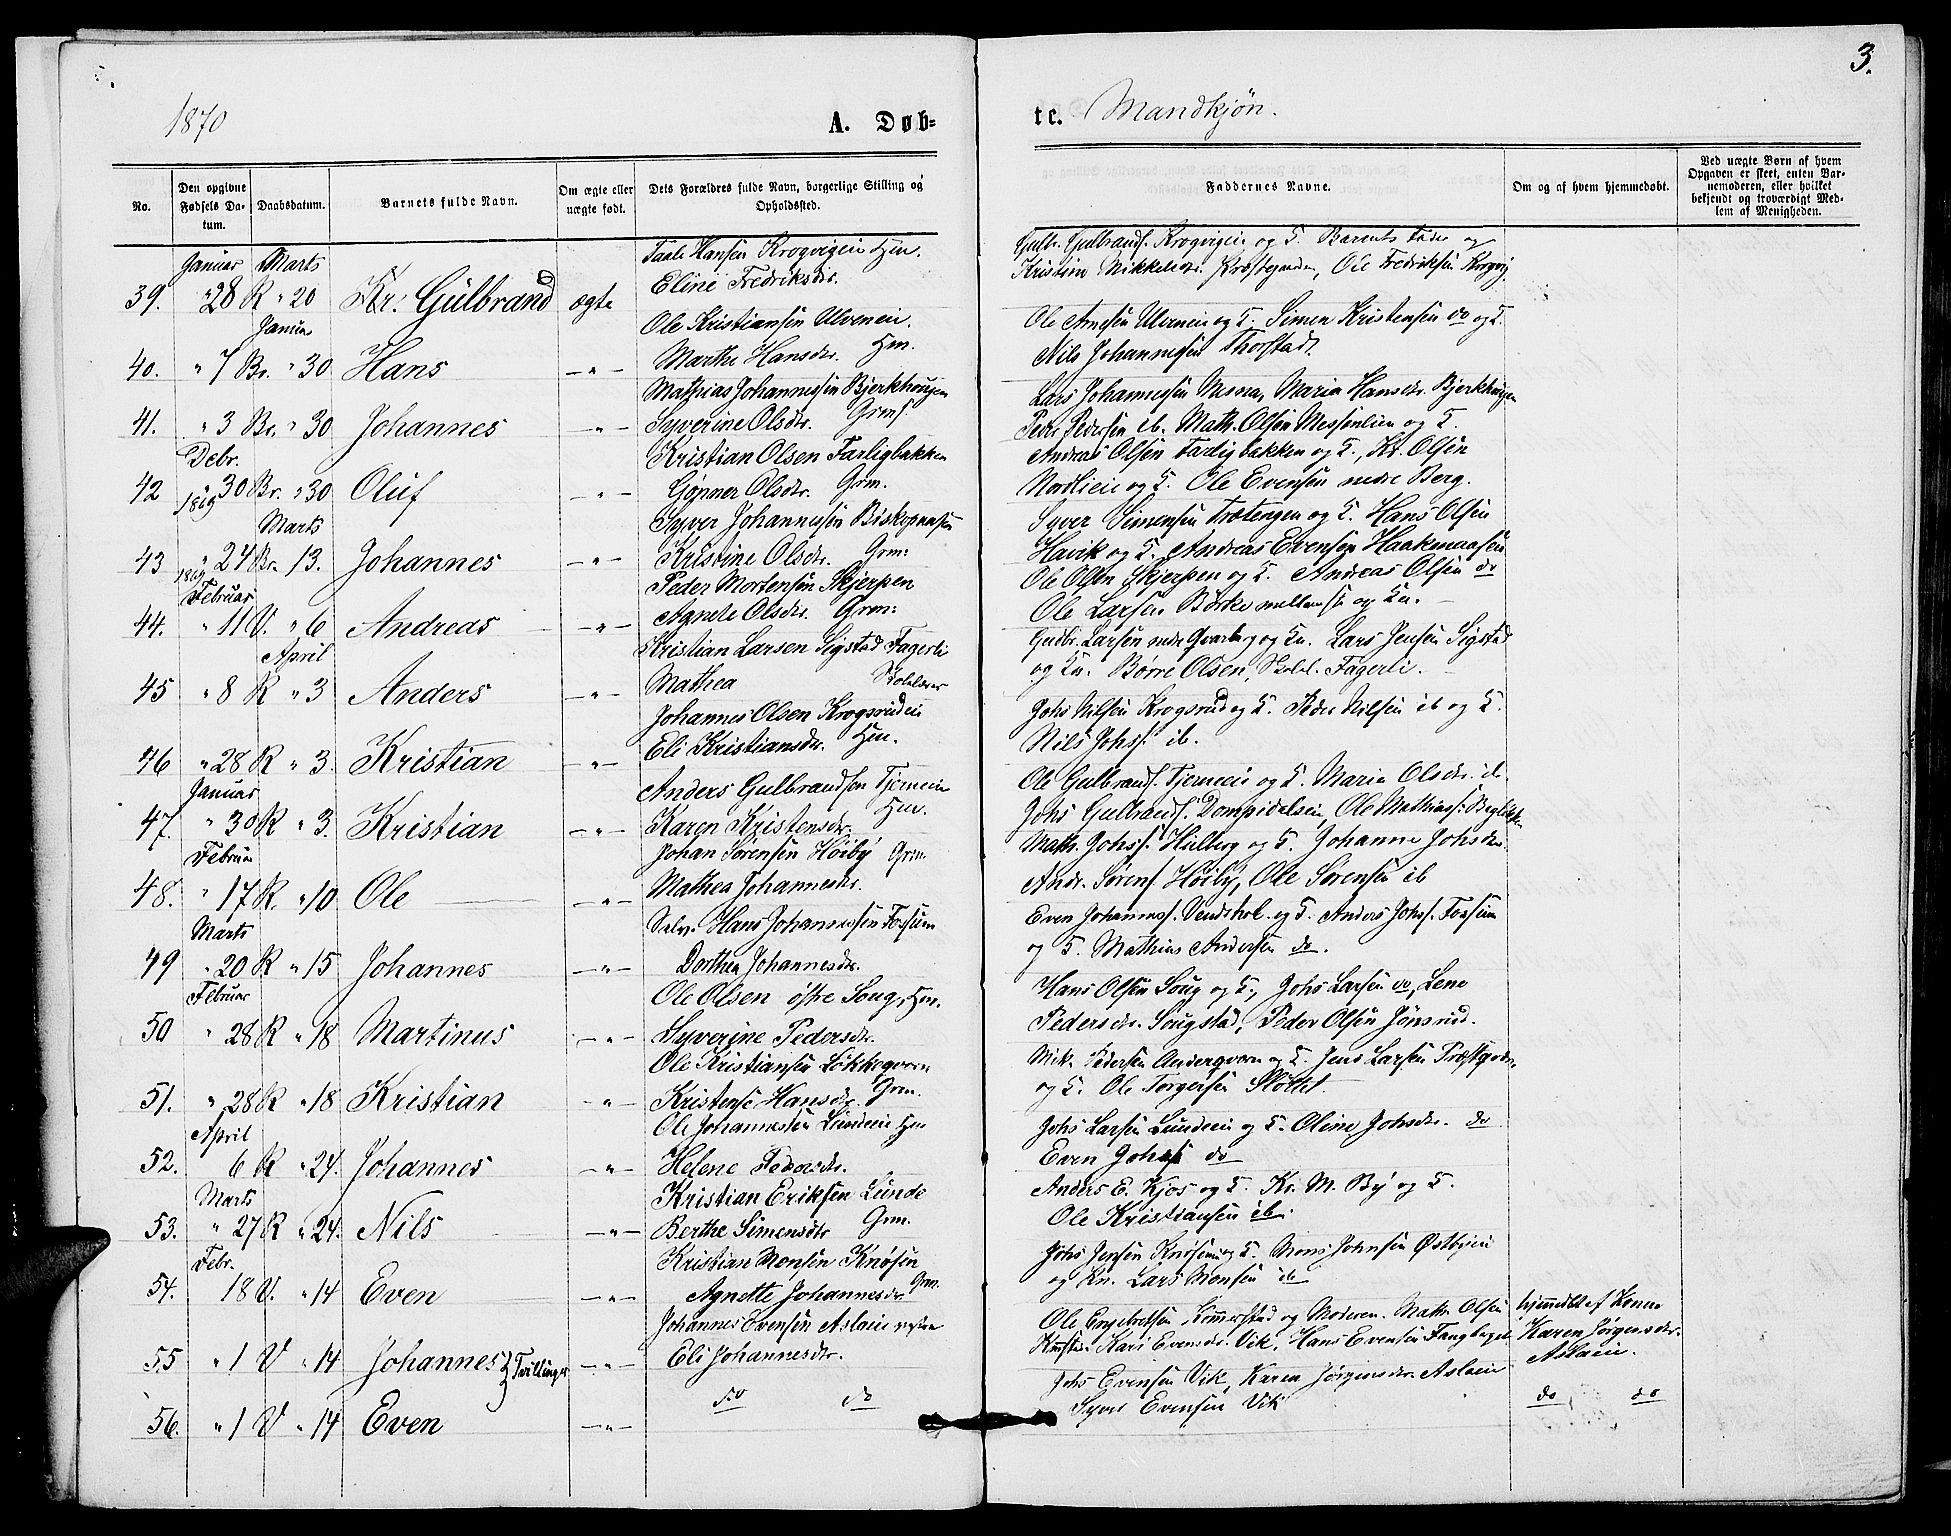 3.
1870
A. Døb-
te. Mandkjøn.
No.
Den opgivne Fødsels Da-tum.
Daabsdatum.
Barnets fulde Navn.
Om ægte eller uægte født.
Dets Forældres fulde Navn, borgerlige Stilling og Opholdssted.
Faddernes Navne.
Om og af hvem hjemmedøbt.
Ved uægte Børn af hvem Opgaven er skeet, enten Bar-nemoderen, eller hvilket bekjendt og troværdigt Med-lem af Menigheden.
Januar Marts
39. " 28 R " 20 Kr: Gulbrand ægte
Hansen Krogvigeie Hm.
Eline Fredriksdr.
Kristine Mikkelsdr. Ole Fredriksen
Januar
40. " 7 Br. " 30 Hans — " —
Ole Kristiansen Ulveneie.
Marthe Hansdr. Hm.
Ole Arnesen Ulverneie og K. Simen Kristensen do og K.
Nils Johannesen Thorstad.
41. " 3 Br. " 30 Johannes — " —
Mathias Johannesen Bjerkhougen
Syverine Olsdr. Grmf.
Lars Johannesen Maria Hansdr. Bjerkhugen
Peder Pedersen ib. Math. Olsen Messenlien og K.
Debr.
42 " 30 Br. " 30 Oluf — " —
1869
Kristian Olsen Farligbakken
Olsdr. Grm.
Andreas Olsen Farligbakken og K., Kr. Olsen
Nordlieie og K. Ole Evensen nedre Berg.
Marts
43 " 24 Br. 13. Johannes — " —
1869
Syver Johannesen
Kristine Olsdr. Grm:
Syver Simensen Trætengen og K. Hans Olsen
Havik og K. Andreas Evensen
Februar
44. " 11 V. " 6 Andreas — " —
Peder Mortensen Skjerpen
Agnete Olsdr. Grm:
Ole Olsen Skjerpen og K. Andreas Olsen do
Ole Larsen Børke og Kn.
April
45 " 8 R " 3 Anders — " —
Kristian Larsen Sigstad Fagerli
Mathea Skolelærer
Gudbr. Larsen nedre Qvarberg og Kn. Lars Jensen Sigstad
og Kn. Børre Olsen, Skolel. Fagerli.
46 " 28 R " 3. Kristian — " —
Johannes Olsen Krogsrudeie
Eli Kristiansdr. Hm.
Johs Nilsen Krogsrud og K. Peder Nilsen ib og K.
Nils Johs. ib.
Januar
47. " 30 R " 3. Kristian — " —
Anders Gulbrandsen Tjerneie
Karen Kristensdr. Hm.
Ole Gulbrands. Tjerneie og K. Maria Olsdr. ib
Johs Gulbrands. Ole Mathias:
Februar
48. " 17 R. " 10 Ole — " —
Johan Sørensen Høiby Grm.
Mathea Johannesdr.
Math. Johs. Hilberg og K. Johanne Johsdr.
Andr. Sørens. Høiby, Ole Sørensen ib
Marts
49 " 20 R " 15 Johannes — " —
Selv. Hans Johannesen Fossum
Dorthea Johannesdr.
Even Johannes. Vendshol. og K. Anders Johs. Fossum
og K. Mathias Andersen do.
Februar
50 " 28 R " 18 Martinus — " —
Ole Olsen østre Soug, Hm.
Syverine Pedersdr.
Hans Olsen Soug og K., Johs Larsen do, Lene
Pedersdr. Sougstad, Peder Olsen Jønsrud.
51. " 28 R " 18 Kristian "
Ole Kristiansen Løkkeqvern
Kristense Hansdr. Grm.
Mik. Pedersen og K. Jens Larsen
og K. Ole Torgersen Slottet
April
52. 6 R " 24. Johannes — " —
Ole Johannesen Lundeeie Hm
Helene Pedersdr.
Johs Larsen Lundeeie og K. Oline Johsdr. do
Even Johs. do
Marts
53. " 27 R " 24. Nils — " —
Kristian Eriksen Lunde
Berthe Simensdtr Grm.
Anders E. Kjos og K. Kr. M. By og K.
Ole Kristiansen ib.
Febr.
54. 18 V. " 14 Even — " —
Kristian Monsen Knøsen
Agnette Johannesdr Grm.
Johs Jensen Knøsen og K. Mons Johnsen Østbyeie
og Kn. Lars Monsen ib
55 " 1 V " 14 Johannes } Tvillinger — " —
Johannes Evensen Aslaeie
Eli Johannesdr.
Ole Engebretsen Kummerstad og Moderen. Math. Olsen
Kari Evensdr. Vik, Hans Evensen
hjemmedbt af Konen
Karen Jørgensdr.
Aslaeie.
56. " 1 V " 14 Even — " —
do do
Johs Evensen Vik, Karen Jørgensdr. Aslaeie
Syver Evensen Vik
do do